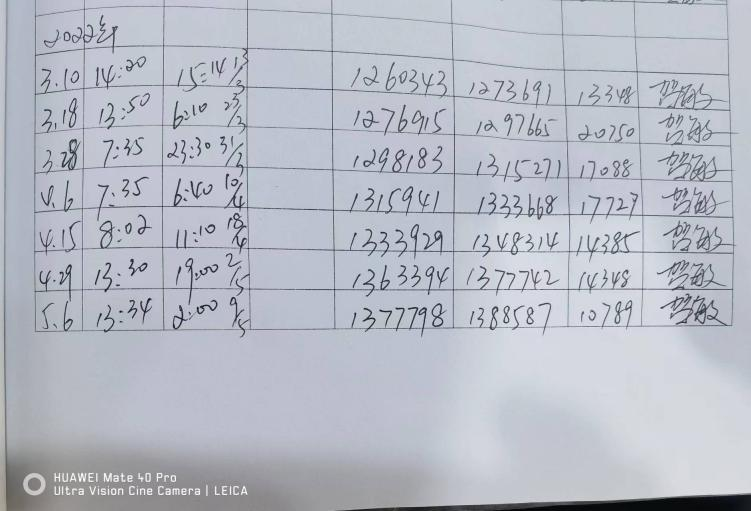 2022年
3.10 14:20 15:14 13/3 1260343 1273691 13348
3.18 13:50 6:10 23/3 1276915 1297665 20750
3.28 7:35 23:30 31/3 1298183 1315271 17088
4.6 7:35 6:40 10/4 1315941 1333668 17727
4.15 8:02 11:10 18/4 1333929 1348314 14385
4.29 13:30 19:00 2/5 1363394 1377742 14348
5.6 13:34 2:00 9/5 1377798 1388587 10789
HUAWEI Mate 40 Pro
Ultra Vision Cine Camera | LEICA